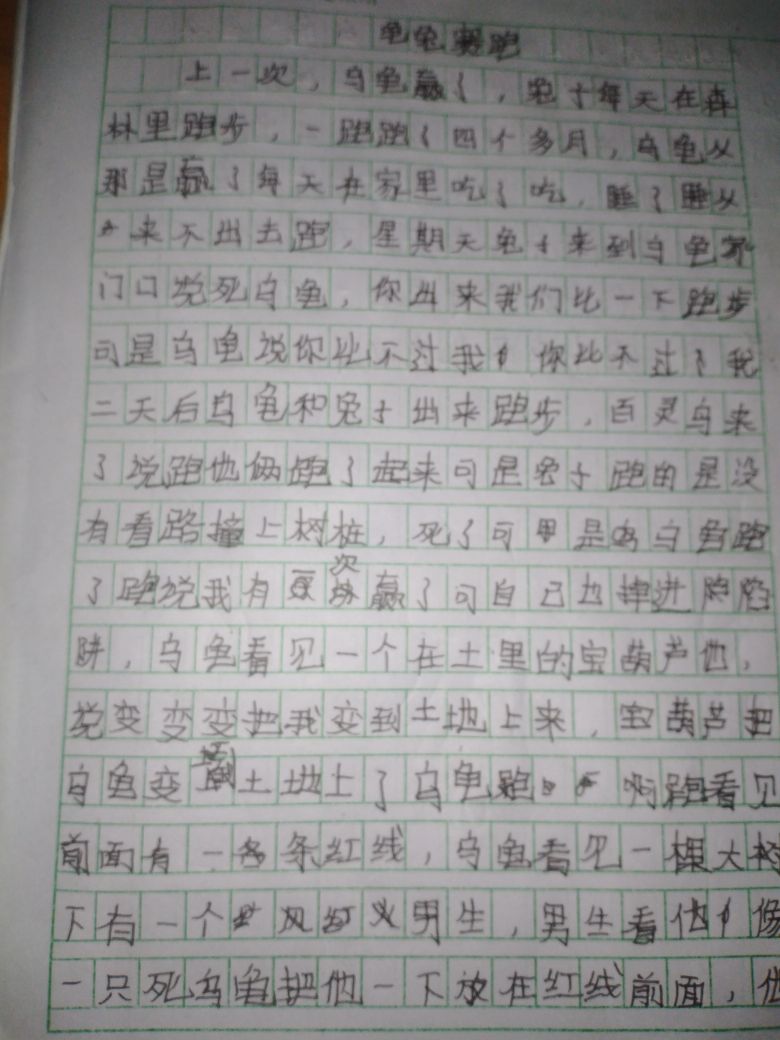 龟兔赛跑
上一次，乌龟赢了，兔子每天在森
林里跑步，一跑跑了四个多月，乌龟从
那是赢了每天在家里吃了吃，睡了睡从
来不出去跑，星期天兔子来到乌龟家
门口说死乌龟，你出来我们比一下跑步
可是乌龟说你比不过我你比不过了我
二天后乌龟和兔子出来跑步，百灵鸟来
了说跑他俩跑了起来可是兔子跑的是没
有看路撞上树桩，死了可是乌龟跑
了跑说我有次赢了可自己也掉进陷
阱，乌龟看见一个在土里的宝葫芦他，
说变变变把我变到土地上来，宝葫芦把
乌龟变到土地上了乌龟跑啊跑看见
前面有一条红线，乌龟看见一棵大树
下有一个男生，男生看他像
一只死乌龟把他一下放在红线前面，他